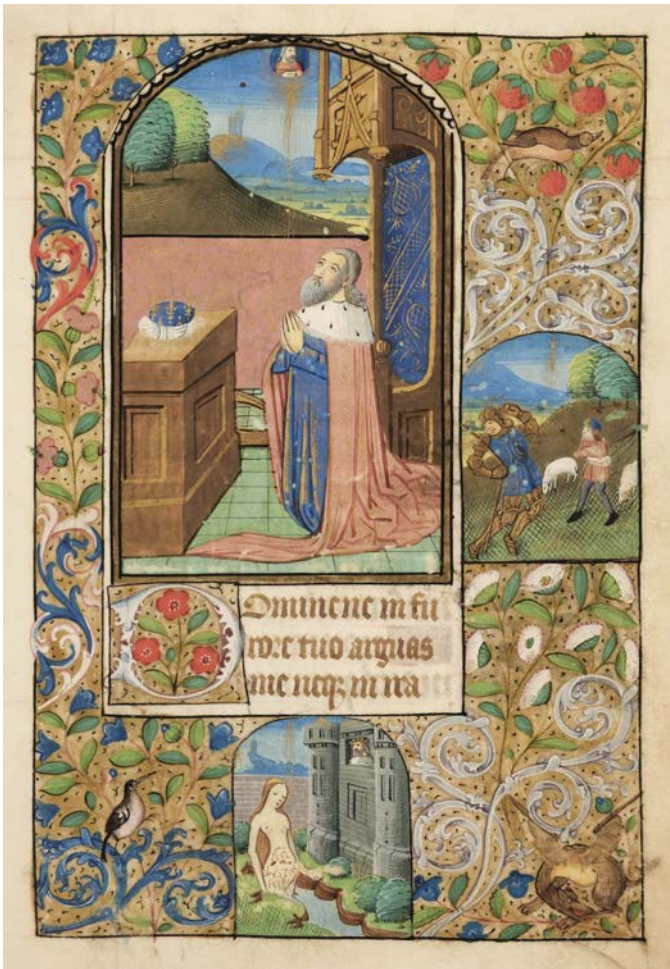 Domine ne in fu
rore tuo arguas
me neq3 in ira